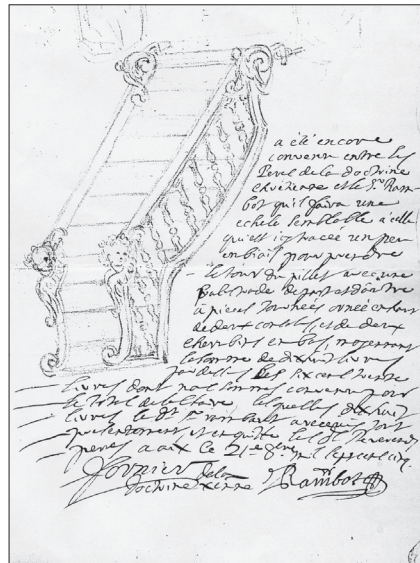 a été encore
convenu entre les
Peres de la doctrine
chretienne et le Sr Ram-
bot qu'il faira une
echele semblable a celle
qui est icy tracée un peu
en biais pour prendre
le tour du pillet avec une
Balustrade de part et dautre
a pieces tournées ornée en bas
de deux consoles, et de deux
cherubins en bas, moyenant
la somme de dixhuit livres
par dessus les six cent trente
livres dont nous sommes convenu pour
le total de la chaire lesquelles dixhuit
livres le dt sr rambot a receu tout
presentement et en quitte les dts Reverends
peres a aix ce 21e 8bre mil sept cent cinq
Fournier de la
doctrine xenne Rambot